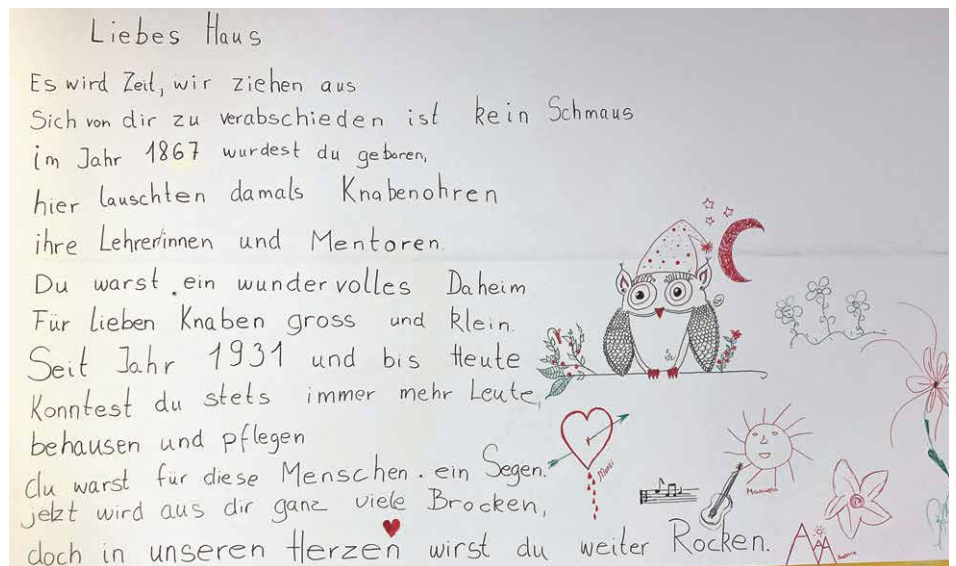 Liebes Haus
Es wird Zeit, wir ziehen aus
Sich von dir zu verabschieden ist kein Schmaus
im Jahr 1867 wurdest du geboren,
hier lauschten damals Knabenohren
ihre Lehrer/innen und Mentoren.
Du warst ein wundervolles Daheim
Für lieben Knaben gross und klein.
Seit Jahr 1931 und bis Heute
Konntest du stets immer mehr Leute,
behausen und pflegen
du warst für diese Menschen. ein Segen.
jetzt wird aus dir ganz viele Brocken,
doch in unseren Herzen wirst du weiter Rocken.
Manuela